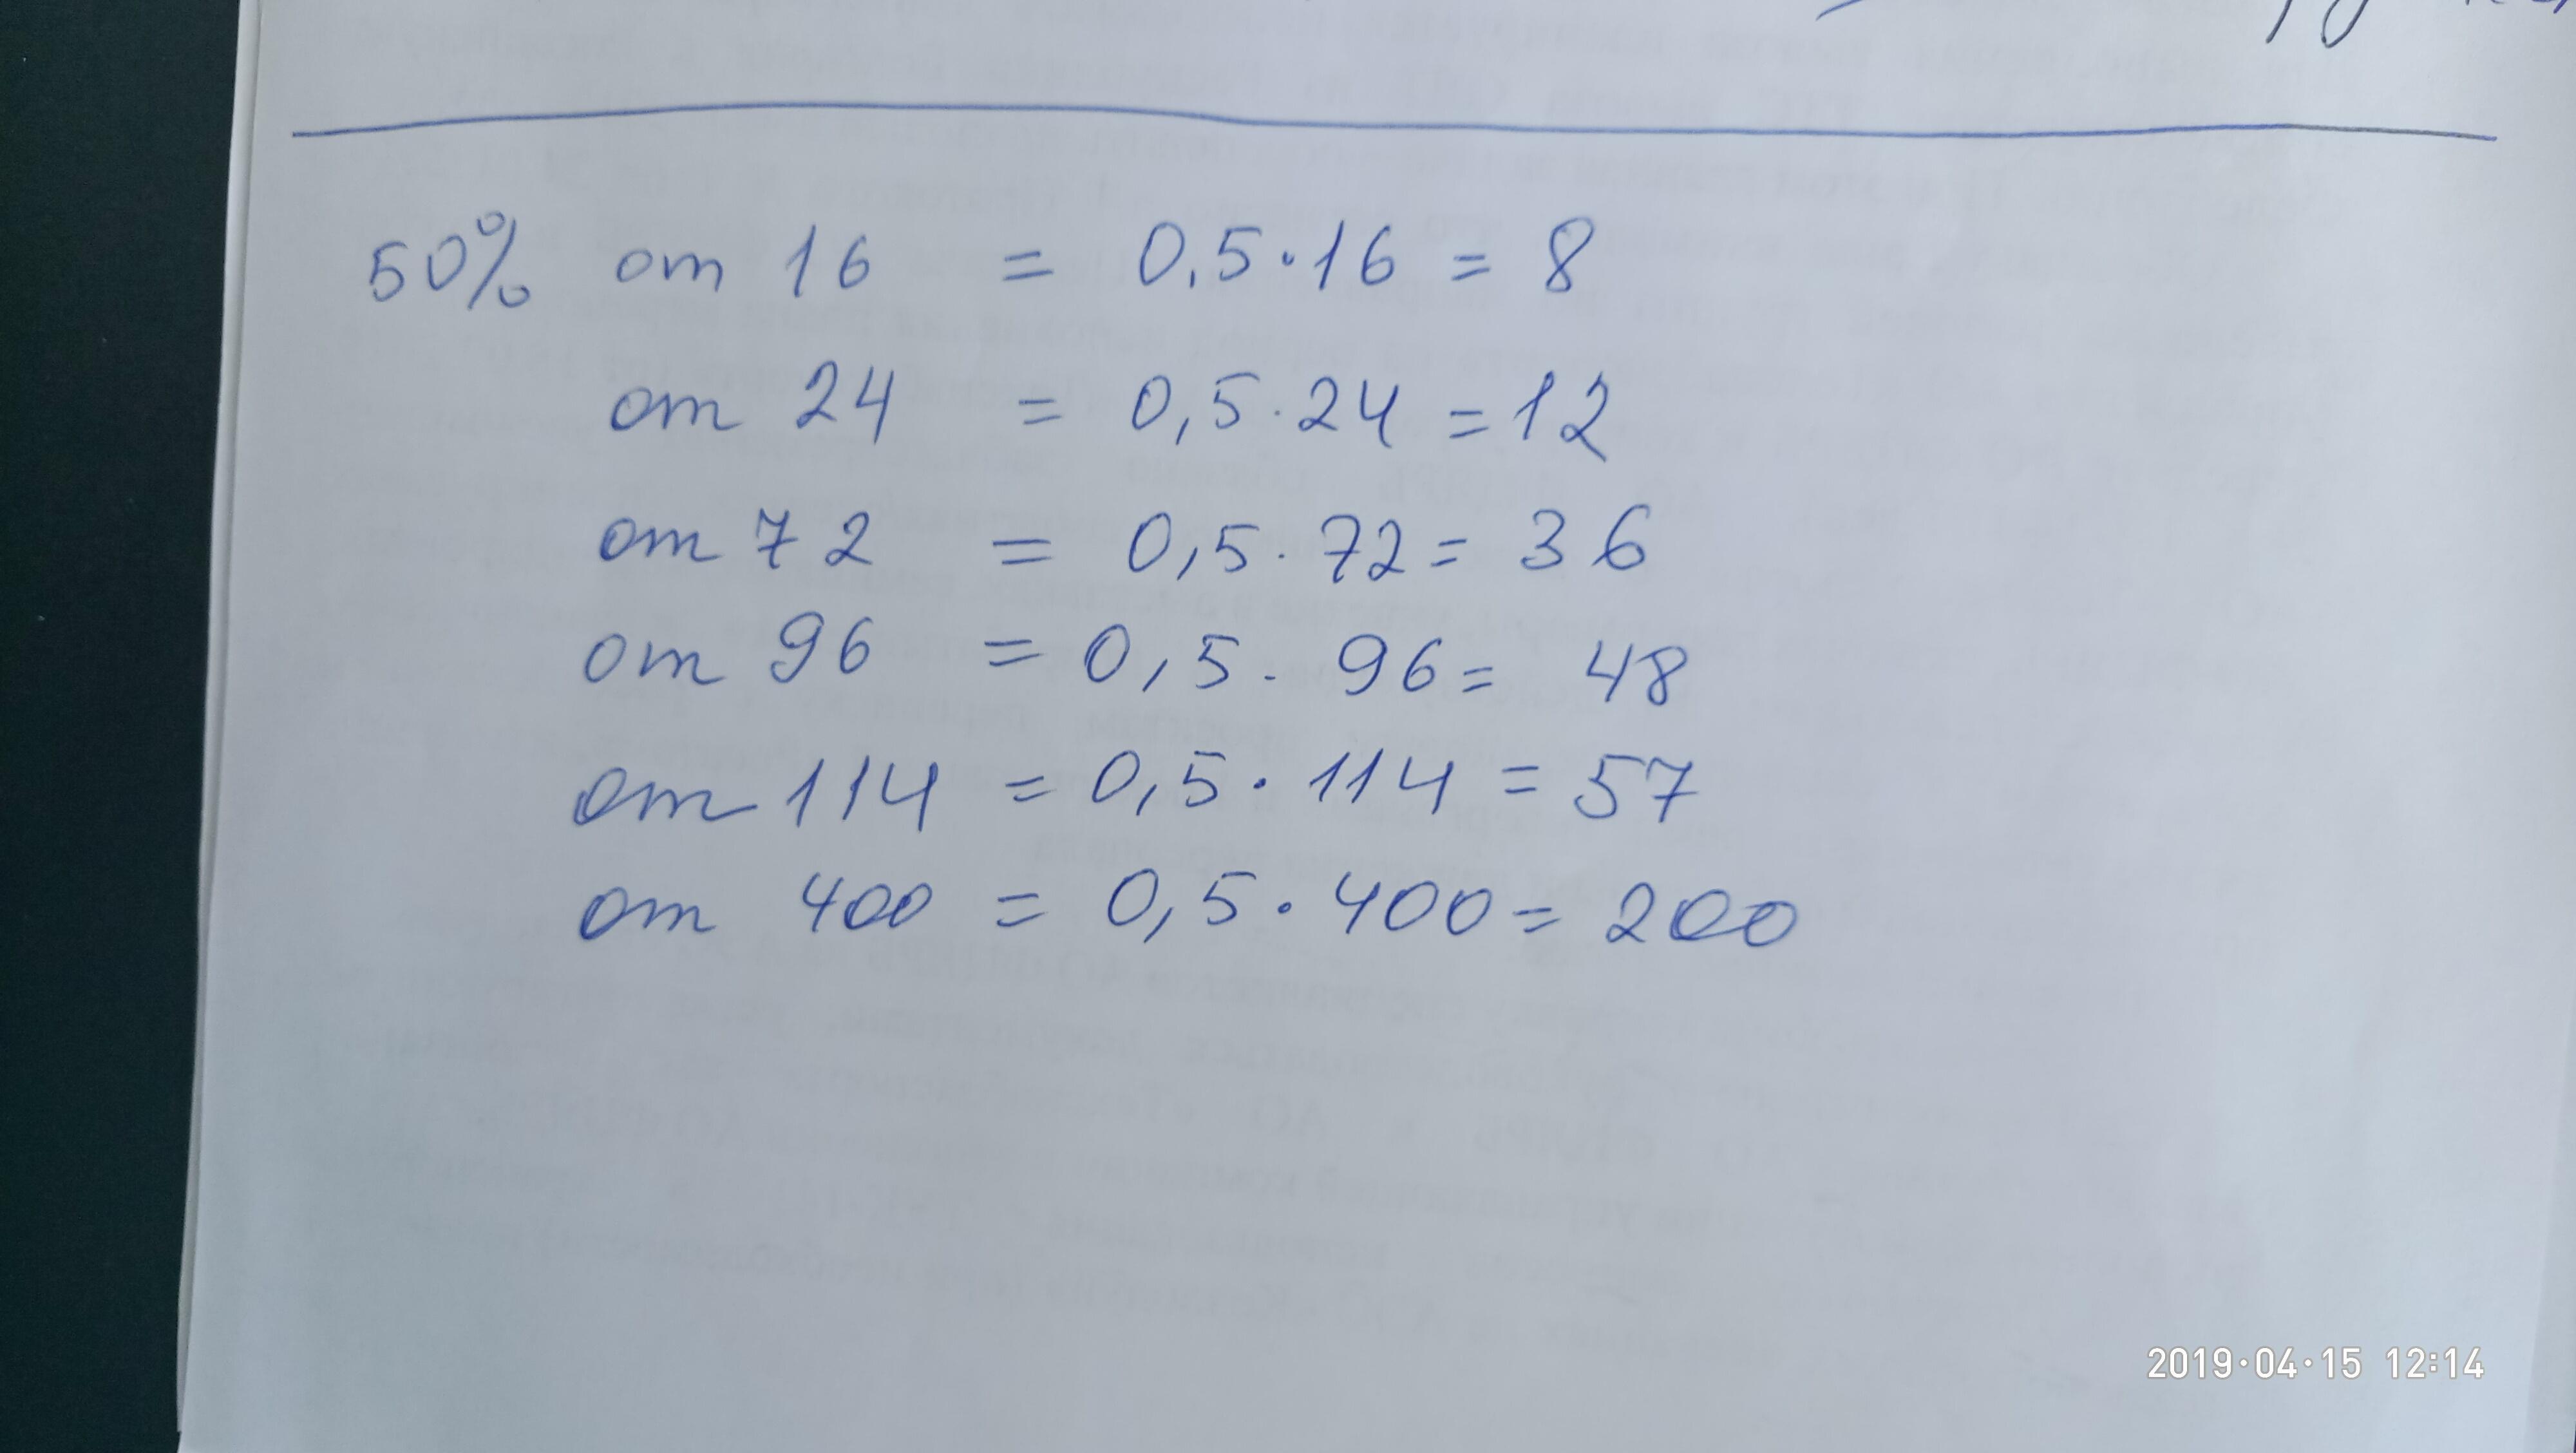 50% от 16 = 0,5·16 = 8
от 24 = 0,5·24 = 12
от 72 = 0,5·72 = 36
от 96 = 0,5·96 = 48
от 114 = 0,5·114 = 57
от 400 = 0,5·400 = 200
2019·04·15 12:14